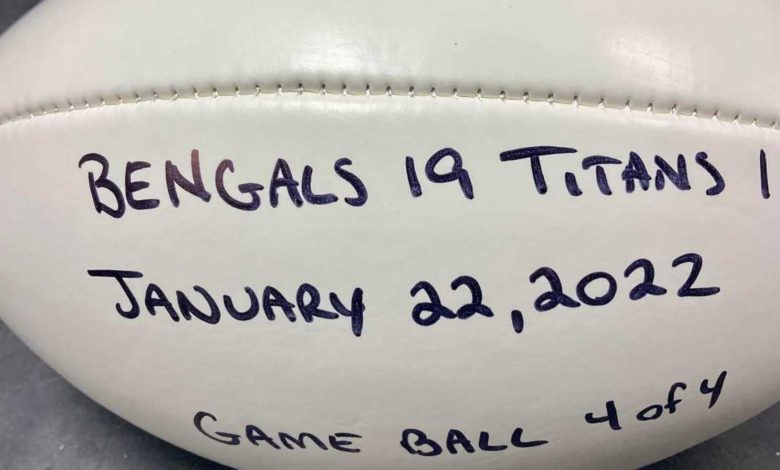 BENGALS 19 TITANS 1
JANUARY 22, 2022
GAME BALL 4 of 4